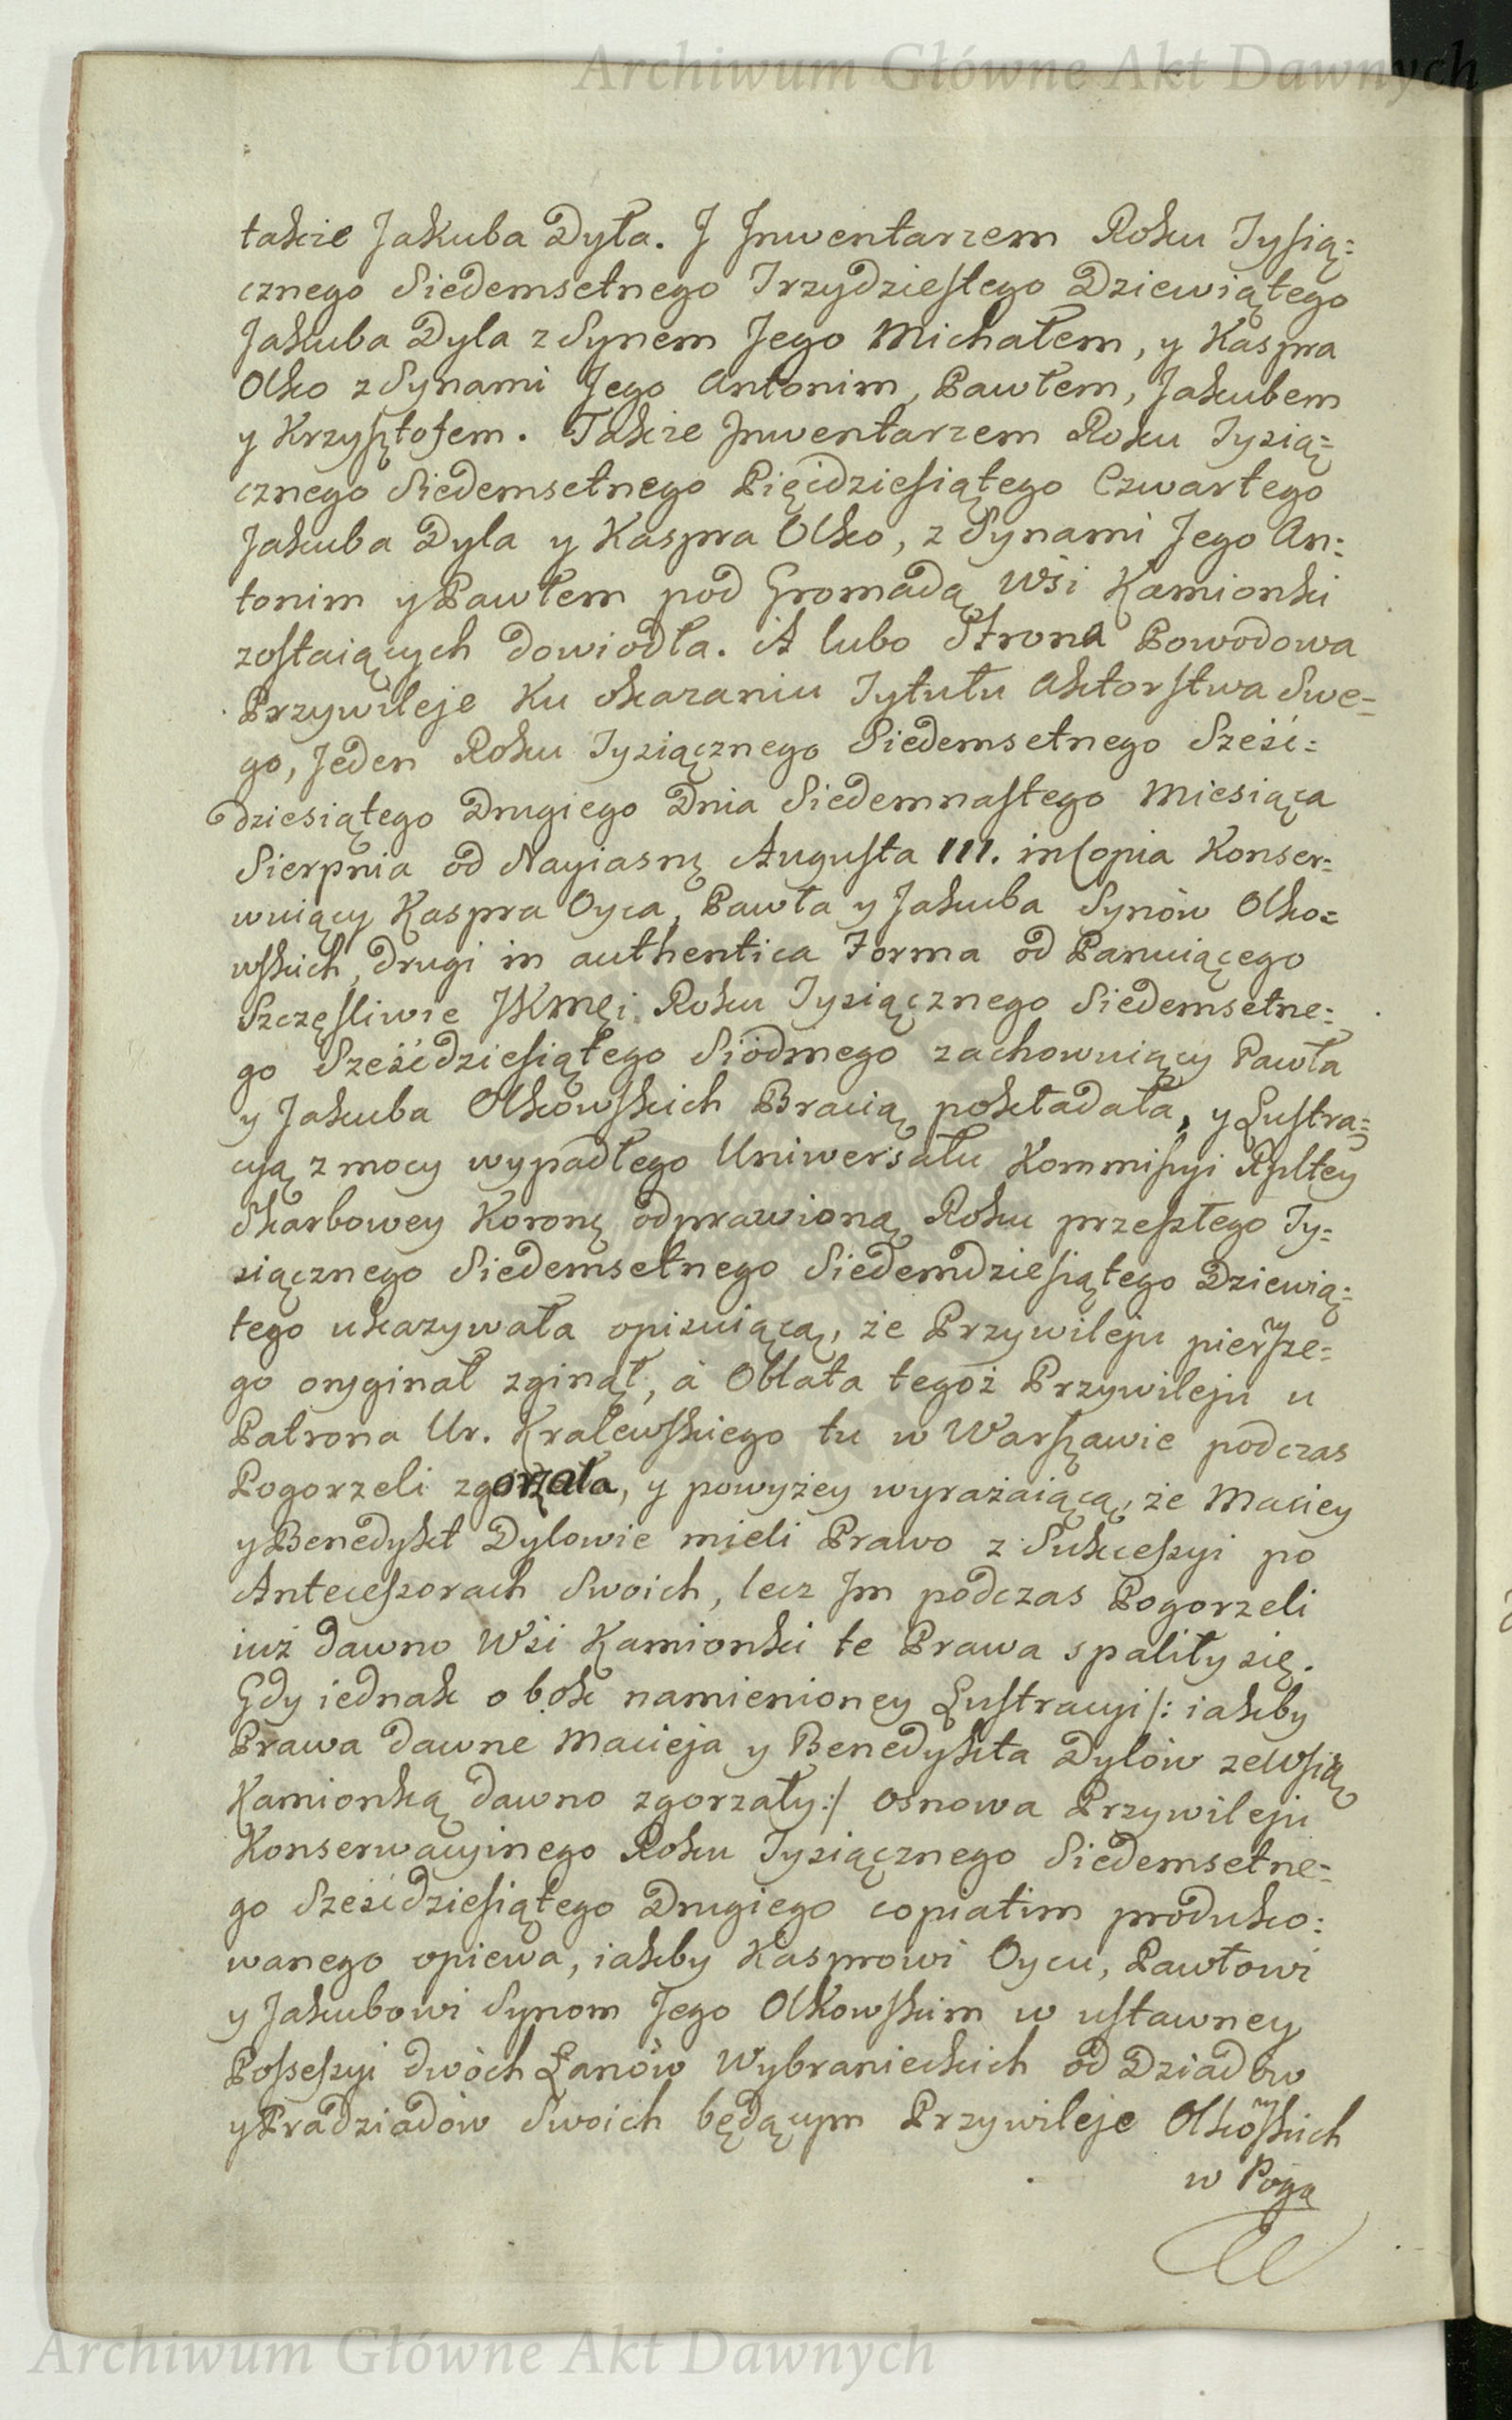 Archiwum Główne Akt Dawnych
także Jakuba Dyla. J Jnwentarzem Roku Tysią=
cznego Siedemsetnego Trzydziestego Dziewiątego
Jakuba Dyla z Synem Jego Michałem, y Kaspra
Olko z Synami Jego Antonim, Pawłem, Jakubem
y Krzysztofem. Także Jnwentarzem Roku Tysią=
cznego Siedemsetnego Pięćdziesiątego Czwartego
Jakuba Dyla y Kaspra Olko, z Synami Jego An=
tonim y Pawłem pod Gromadą Wsi Kamionki
zostaiących dowiodła. A lubo Strona Powodowa
Przywileje Ku okazaniu Tytułu Aktorstwa Swe=
go, Jeden Roku Tysiącznego Siedemsetnego Sześć=
dziesiątego Drugiego Dnia Siedemnastego Miesiąca
Sierpnia od Nayiasnę Augusta III. in Copia Konser=
wuiący Kaspra Oyca, Pawła y Jakuba Synów Olko=
wskich, drugi in authentica Forma od Panuiącego
Szczęsliwie JKMęi Roku Tysiącznego Siedemsetne=
go Sześćdziesiątego Siódmego zachowuiący Pawła
y Jakuba Olkowskich Bracią pokładała, y Lustra=
cyą z mocy wypadłego Uniwersału Kommissyi Rpltey
Skarbowey Koronę odprawioną Roku przeszłego Ty=
siącznego Siedemsetnego Siedemdziesiątego Dziewią=
tego ukazywała opisuiącą, że Przywileju pierwsze=
go oryginał zginął, á Oblata tegoż Przywileju u
Patrona Ur. Kralewskiego tu w Warszawie podczas
Pogorzeli zgorzała, y powyżey wyrażaiącą, że Maciey
y Benedykt Dylowie mieli Prawo z Sukcessyi po
Antecessorach Swoich, lecz Jm podczas Pogorzeli
iuż dawno Wsi Kamionki te Prawa spaliły się.
Gdy iednak obok namienioney Lustracyi /: iakby
Prawa dawne Macieja y Benedykta Dylów ze Wsią
Kamionką dawno zgorzały :/ osnowa Przywileju
Konserwacyinego Roku Tysiącznego Siedemsetne=
go Sześćdziesiątego Drugiego copiatim produko=
wanego opiewa, iakby Kasprowi Oycu, Pawłowi
y Jakubowi Synom Jego Olkowskim w ustawney
Possessyi dwóch Łanów Wybranieckich od Dziadów
y Pradziadów Swoich będącym Przywileje Olkowskich
w Poga
Archiwum Główne Akt Dawnych